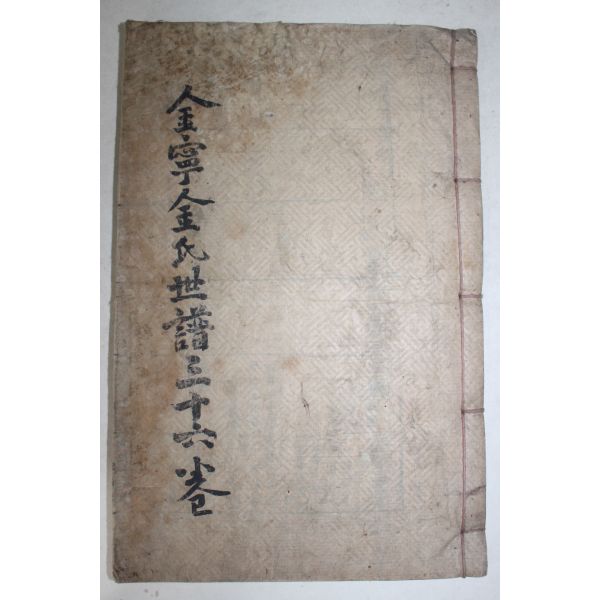 金寧金氏世譜三十六卷